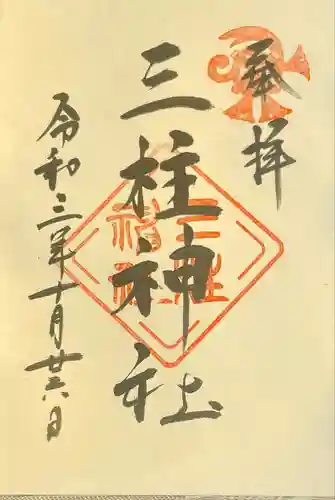 奉拝
三柱神社
三柱
神社
令和三年十月廿六日